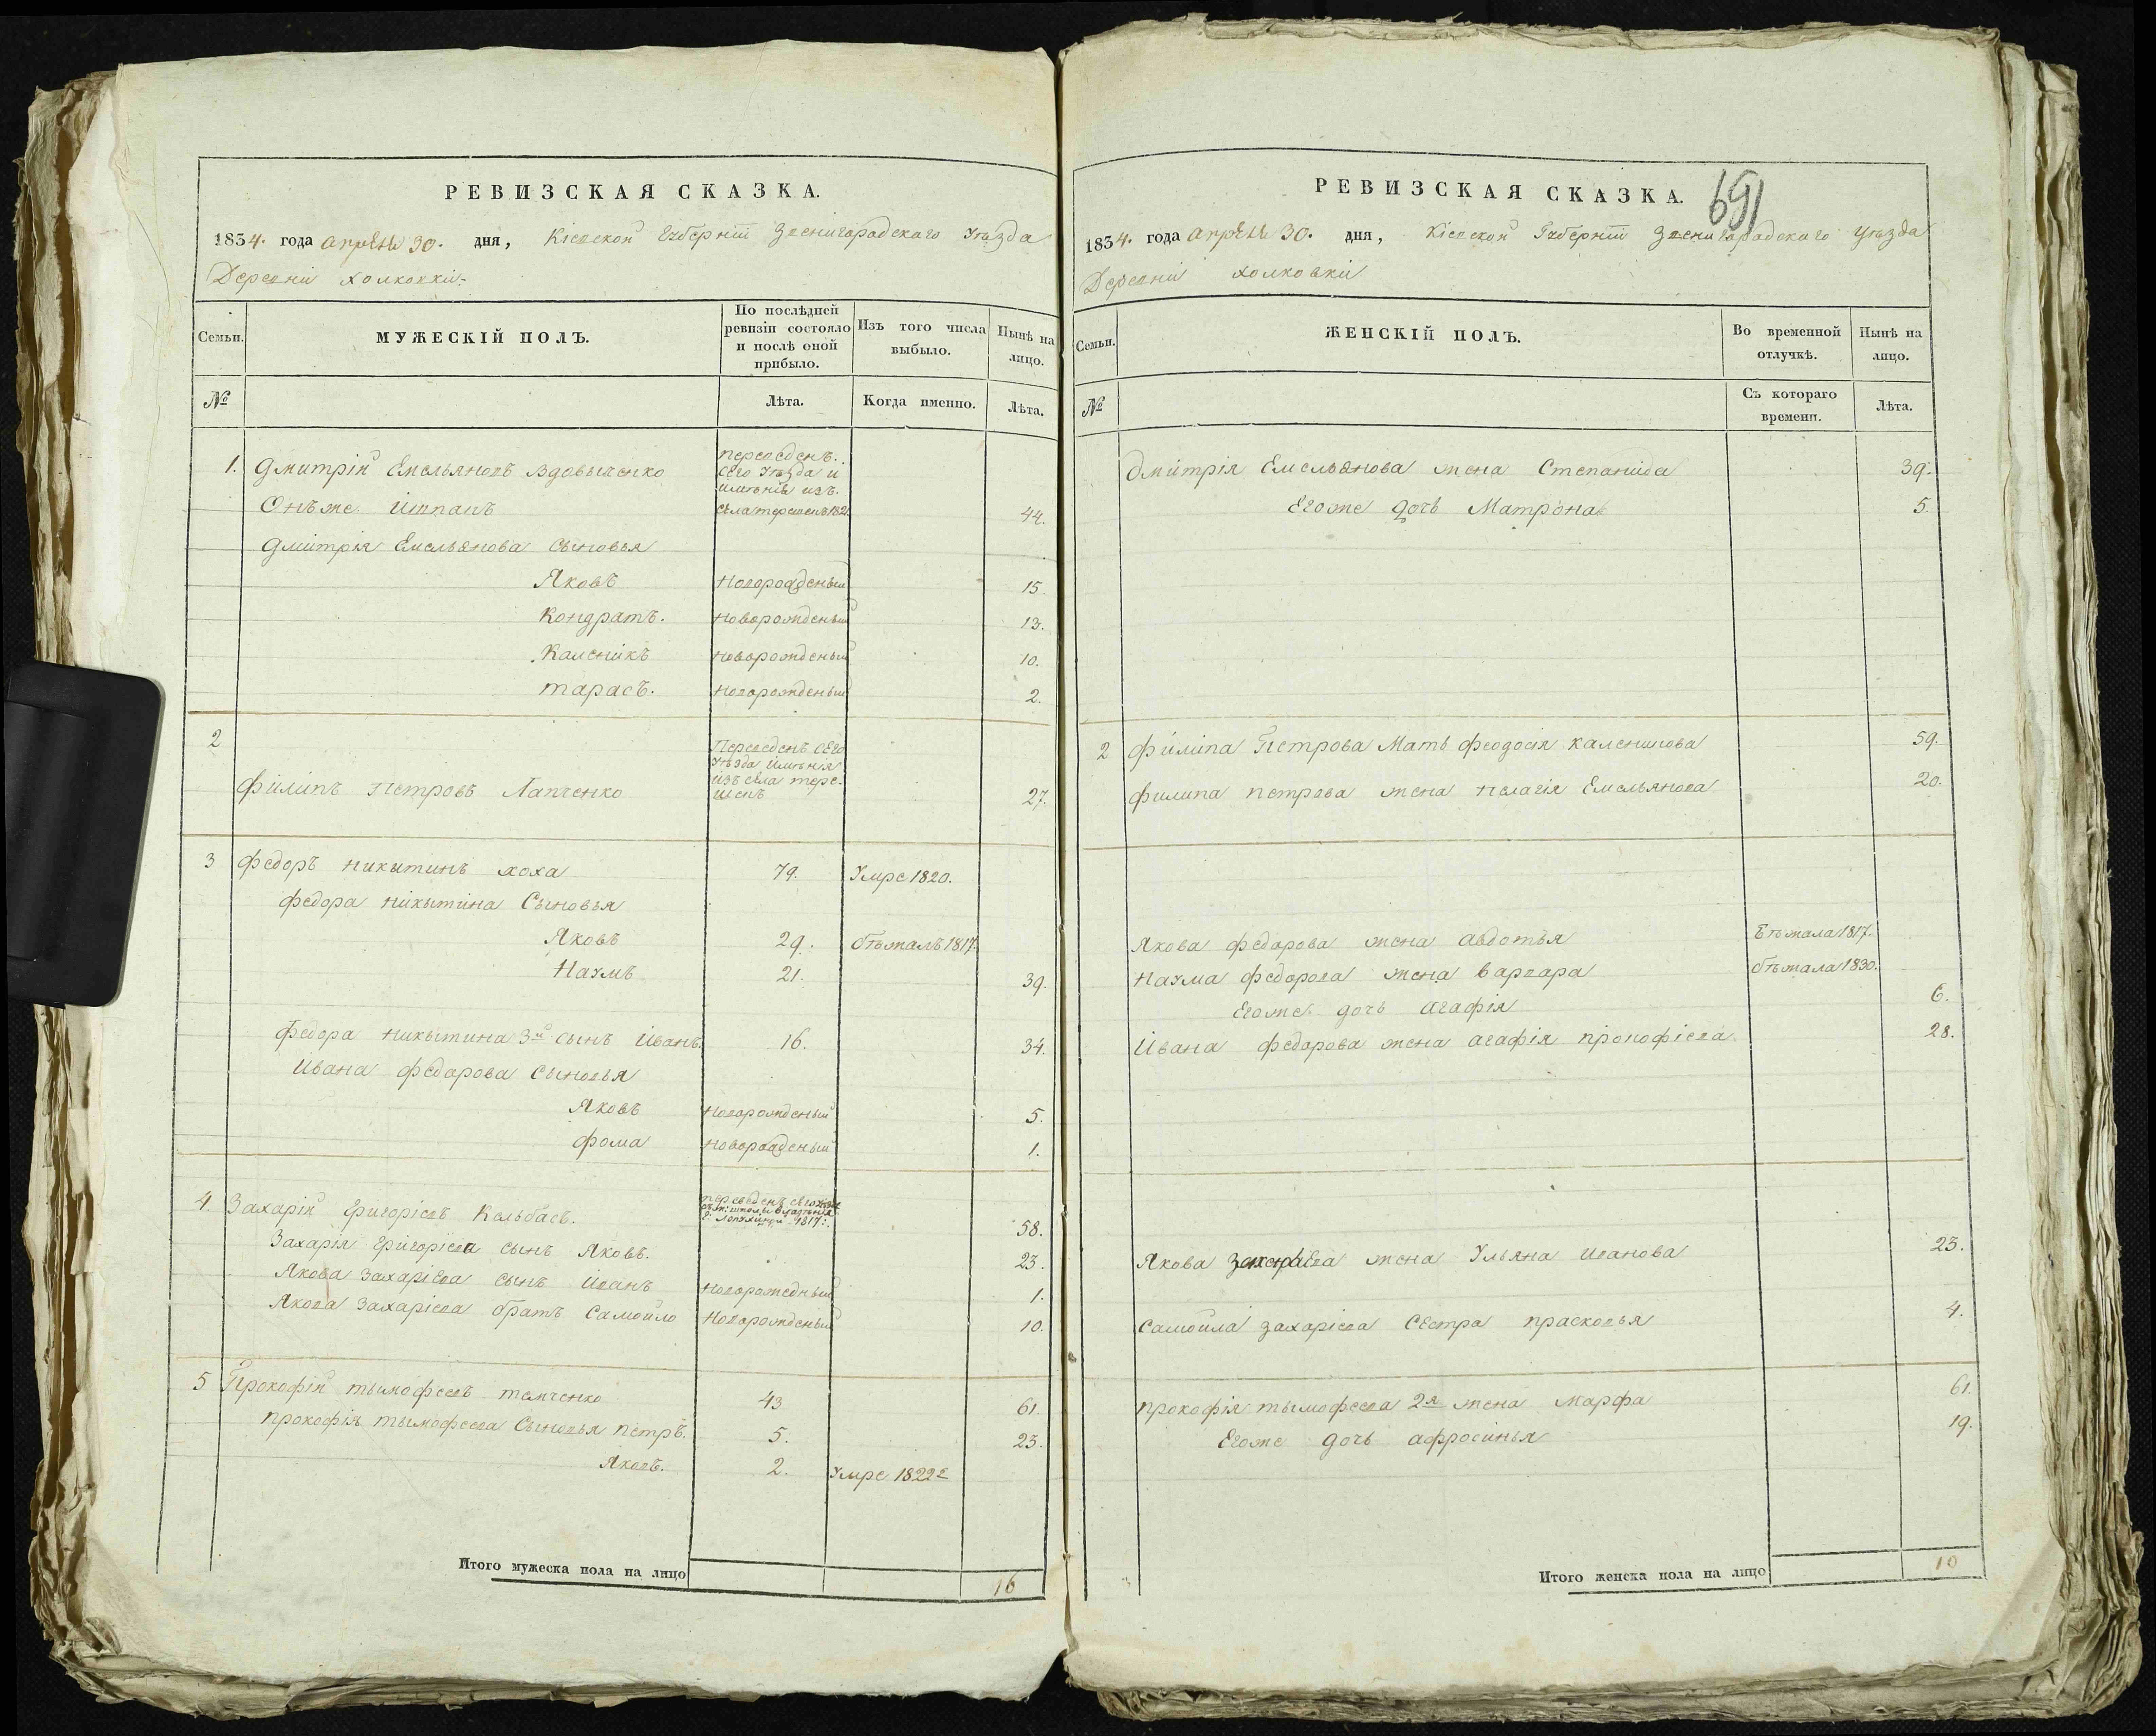 РЕВИЗСКАЯ СКАЗКА.
1834. года апрѣль 30. дня, Кіевской Губерніи Звенигорадского Уѣзда
Деревни холковки
Семьи.
МУЖЕСКІЙ ПОЛЪ.
По послѣдней ревизіи состояло и послѣ оной прибыло.
Изъ того числа выбыло.
Нынѣ на лицо.
№
Лѣта.
Когда именно.
Лѣта.
1. Дмитрій Емельяновъ Вдовыченко
переведенъ.
сего уѣзда и
имѣнія изъ.
Онъ же Иппатъ
села 44.
Дмитрія Емельянова сыновья
Яковъ новорожденый 15.
Кондратъ. новорожденый 13.
Каленикъ новорожденый 10.
тарасъ. новорожденый 2.
2
Переведенъ сего
Уѣзда имѣнія
изъ села
филипъ Петровъ Лапченко 27.
3 федоръ никытинъ хоха 79. Умре 1820.
федора никытина Сыновья
Яковъ 29. бѣжалъ 1817.
Наумъ 21. 39.
федора никытина 3й сынъ Иванъ. 16. 34.
Ивана федарова сыновья
Яковъ новорожденый 5.
фома новорожденый 1.
4 Захарій григоріевъ Кельбасъ.
переведенъ
1817. 58.
Захарія григоріева сынъ Яковъ. 23.
Якова Захаріева сынъ Иванъ новорожедный 1.
Якова Захаріева братъ Самойло Новорожденый 10.
5 Прокофій тымофеевъ темченко 43 61.
прокофія тымофеева Сыновья петръ. 5. 23.
Яковъ. 2. Умре 1822г
Итого мужеска пола на лицо 16
РЕВИЗСКАЯ СКАЗКА.
691
1834. года апрѣль 30. дня, Кіевской Губерніи Звенигорадокаго уѣзда
Деревни холковки
Семьи.
ЖЕНСКІЙ ПОЛЪ.
Во временной отлучкѣ.
Нынѣ на лицо.
№
Съ котораго времени.
Лѣта.
Дмитрія Емельянова жена Степанида 39.
Его же дочь Матрона 5.
2 филипа Петрова Мать феодосія каленикова 59.
филипа петрова жена пелагія Емельянова 20.
Якова федарова жена авдотья Бѣжала 1817.
Наума федарова жена варвара бѣжала 1830.
Его же дочь агафія 6.
Ивана федарова жена агафія прокофіева 28.
Якова Захаріева жена Ульяна Иванова 23.
Самойла захаріева Сестра прасковья 4.
прокофія тымофеева 2я жена марфа 61.
Его же дочь афросинья 19.
Итого женска пола на лицо 10